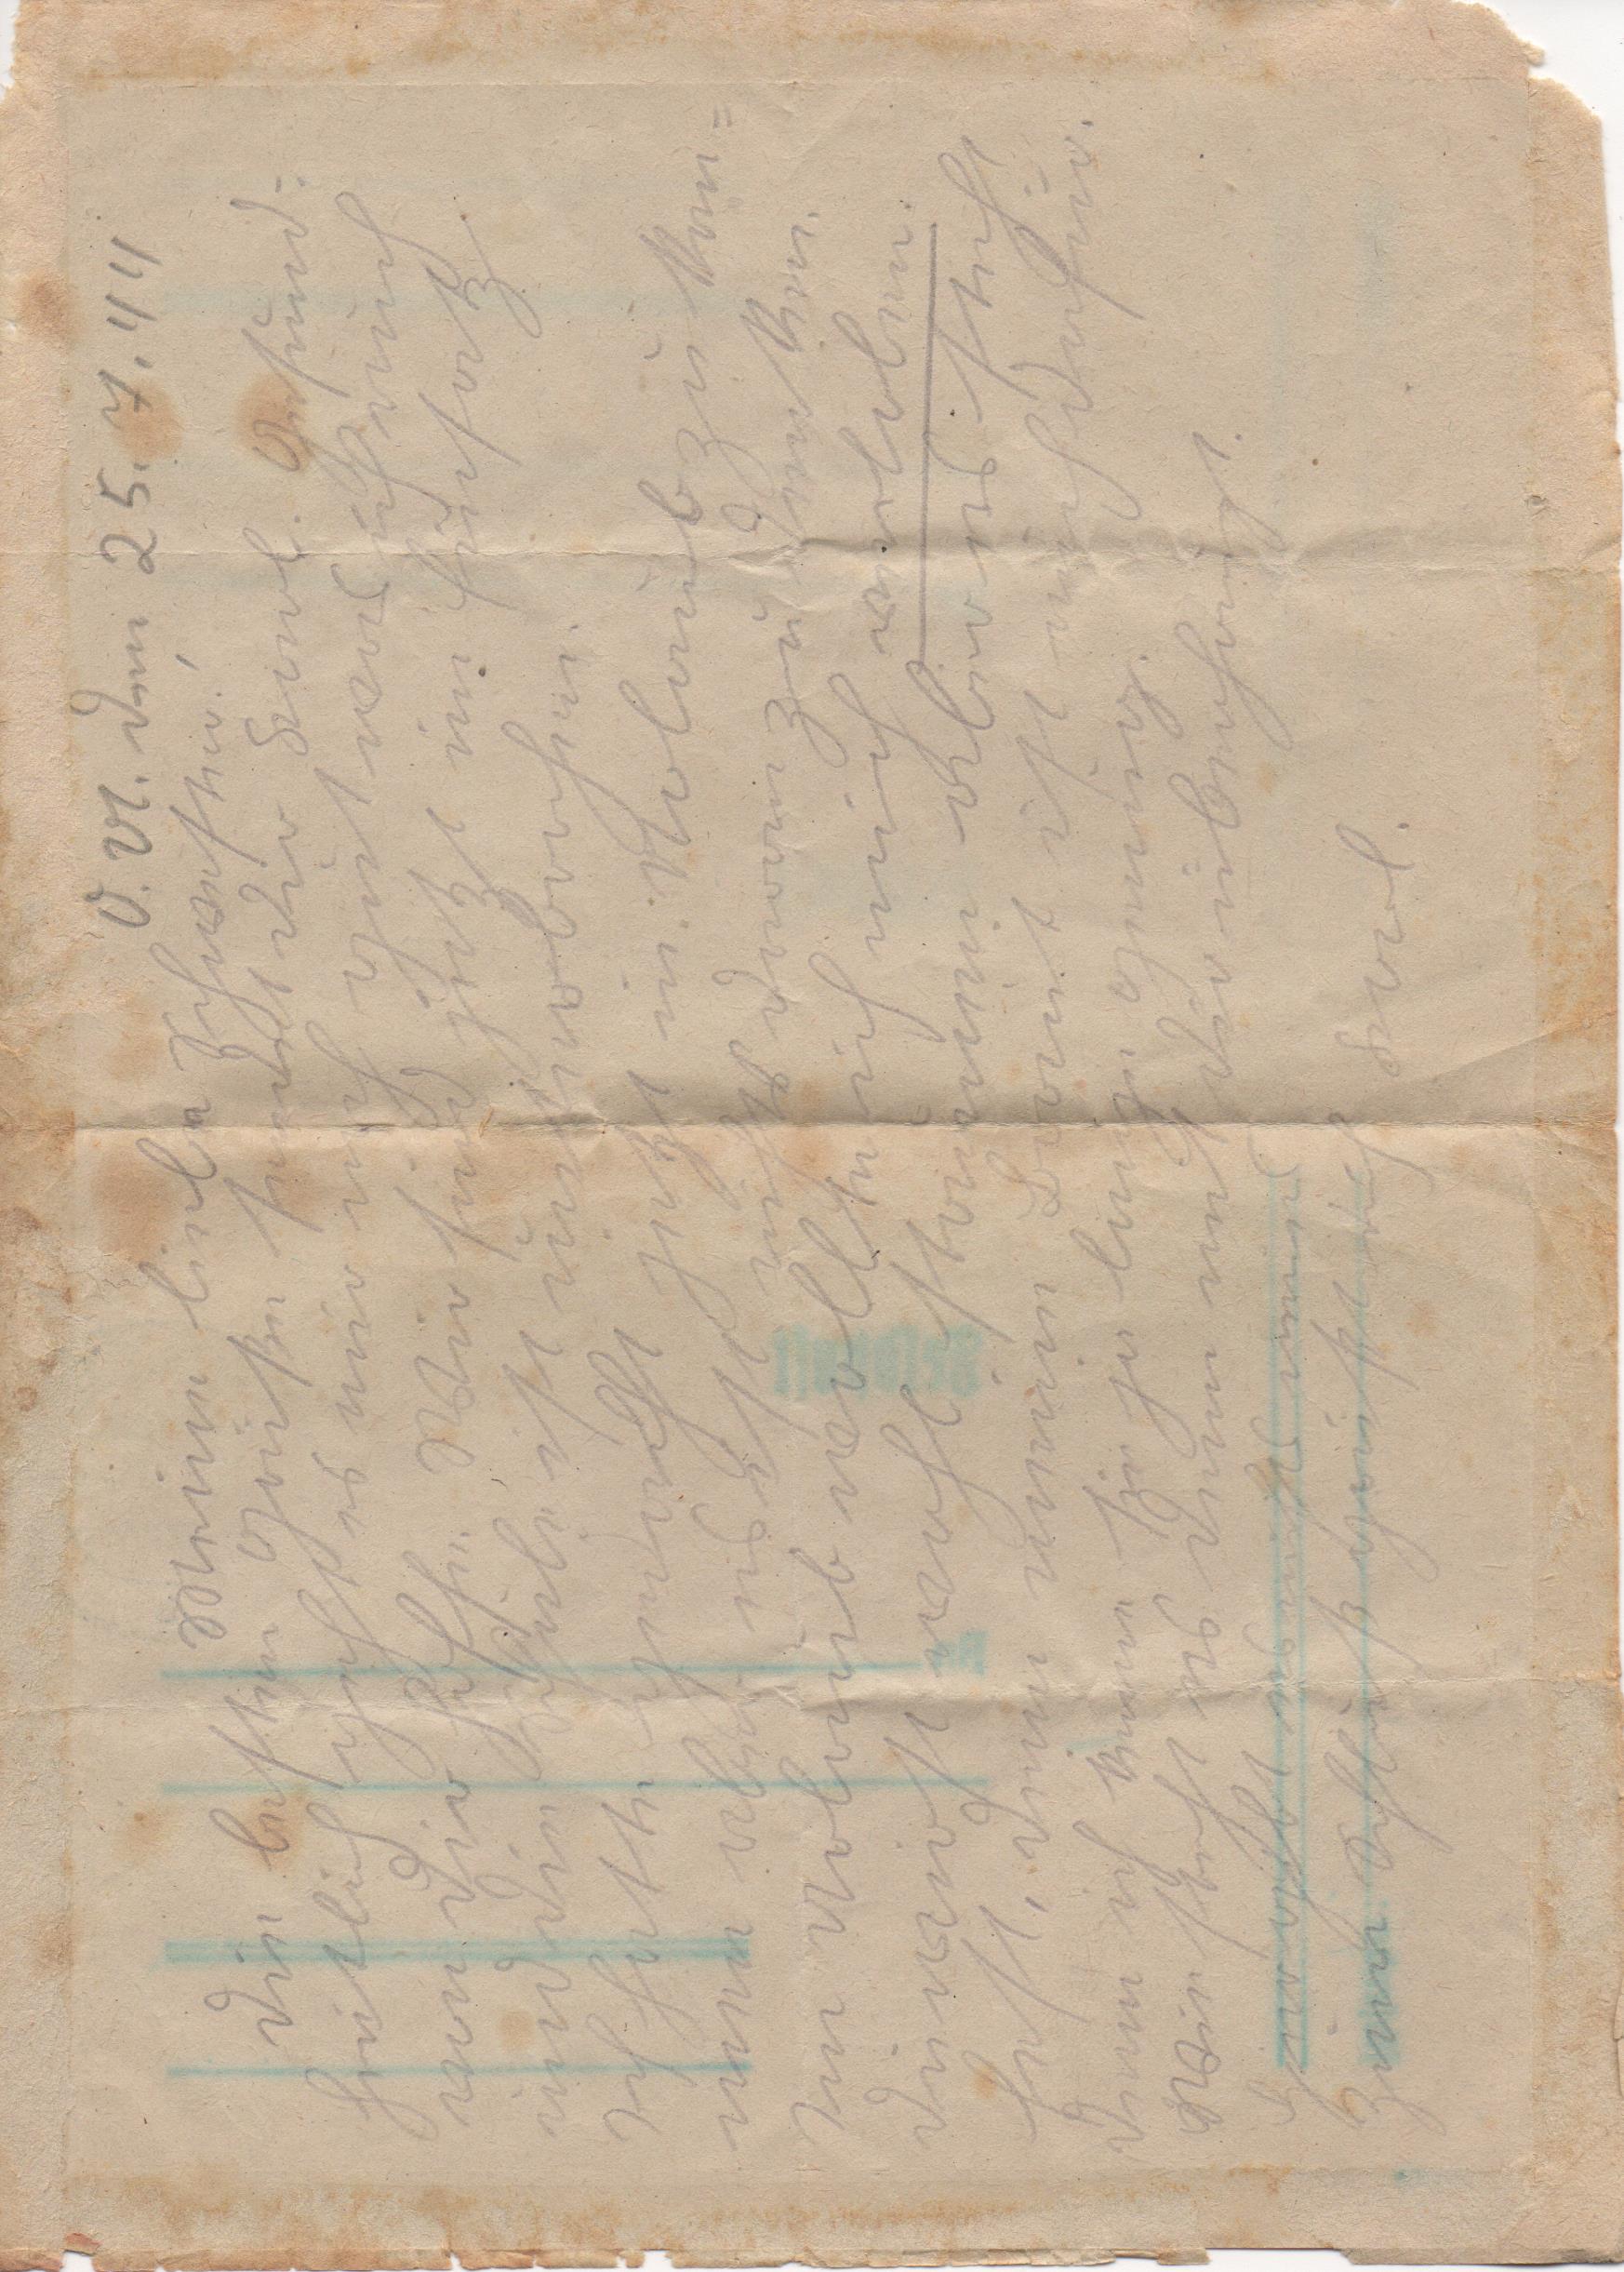 O. U. den 25. 7. 44
Meine liebe Schwester!
Die besten Grüße sendet dir Karl. Gesund-
heitlich geht es mir noch gut was ich auch
von dir hoffe. Wir sind jetzt im Einsatz
und die Schule ist unterbrochen.
Ich hatte gedacht jetzt in Urlaub zu kom=
men aber es ist nichts daran zu denken.
Im Urlaub wollte ich mich verloben.
Du wirst wohl staunen aber es steht
fest, denn meine Braut ist auch dafür.
Denn ich kenne sie ja lange genug.
Wie steht es denn mit dir überhaupt.
Hier gibt es nichts neues
Zum Schluß grüßt dich Karl.